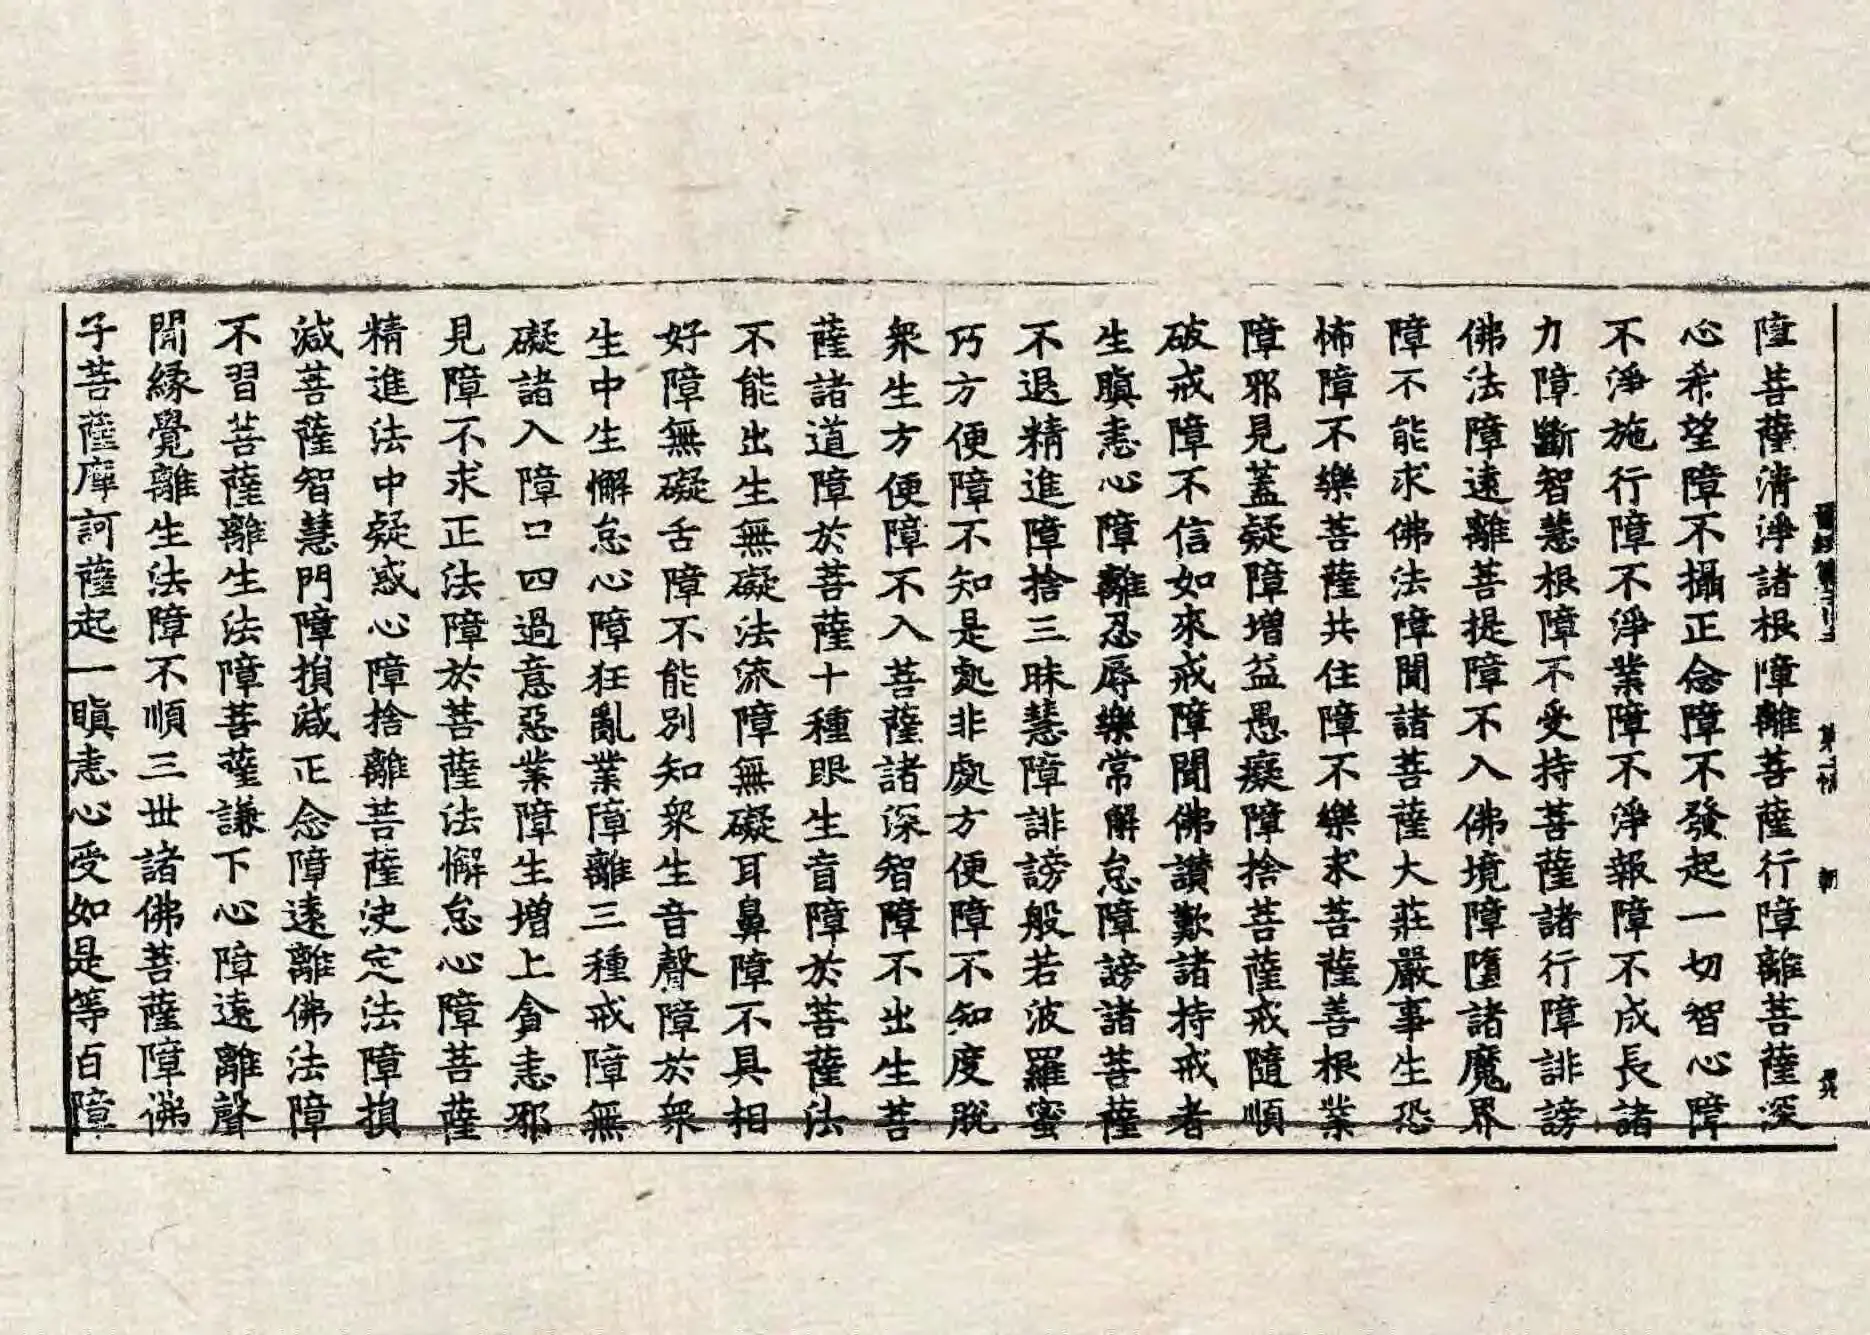 障菩薩清淨諸根障離菩薩行障離菩薩深
心希望障不攝正念障不發起一切智心障
不淨施行障不淨業障不淨報障不成長諸
力障斷智慧根障不受持菩薩諸行障誹謗
佛法障遠離菩提障不入佛境障墮諸魔界
障不能求佛法障聞諸菩薩大莊嚴事生恐
怖障不樂菩薩共住障不樂求菩薩善根業
障邪見蓋疑障增益愚癡障捨菩薩戒隨順
破戒障不信如來戒障聞佛讚歎諸持戒者
生瞋恚心障離忍辱樂常懈怠障謗諸菩薩
不退精進障捨三昧慧障誹謗般若波羅蜜
巧方便障不知是處非處方便障不知度脫
衆生方便障不入菩薩諸深智障不出生菩
薩諸道障於菩薩十種眼生盲障於菩薩法
不能出生無礙法流障無礙耳鼻障不具相
好障無礙舌障不能別知衆生音聲障於衆
生中生懈怠心障狂亂業障離三種戒障無
礙諸入障口四過意惡業障生增上貪恚邪
見障不求正法障於菩薩法懈怠心障菩薩
精進法中疑惑心障捨離菩薩决定法障損
減菩薩智慧門障損減正念障遠離佛法障
不習菩薩離生法障菩薩謙下心障遠離聲
聞緣覺離生法障不順三世諸佛菩薩障佛
子菩薩摩訶薩起一瞋恚心受如是等百障